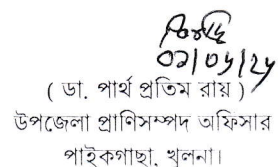 ০১/০৬/২৫
( ডা. পার্থ প্রতিম রায় )
উপজেলা প্রাণিসম্পদ অফিসার
পাইকগাছা, খুলনা।